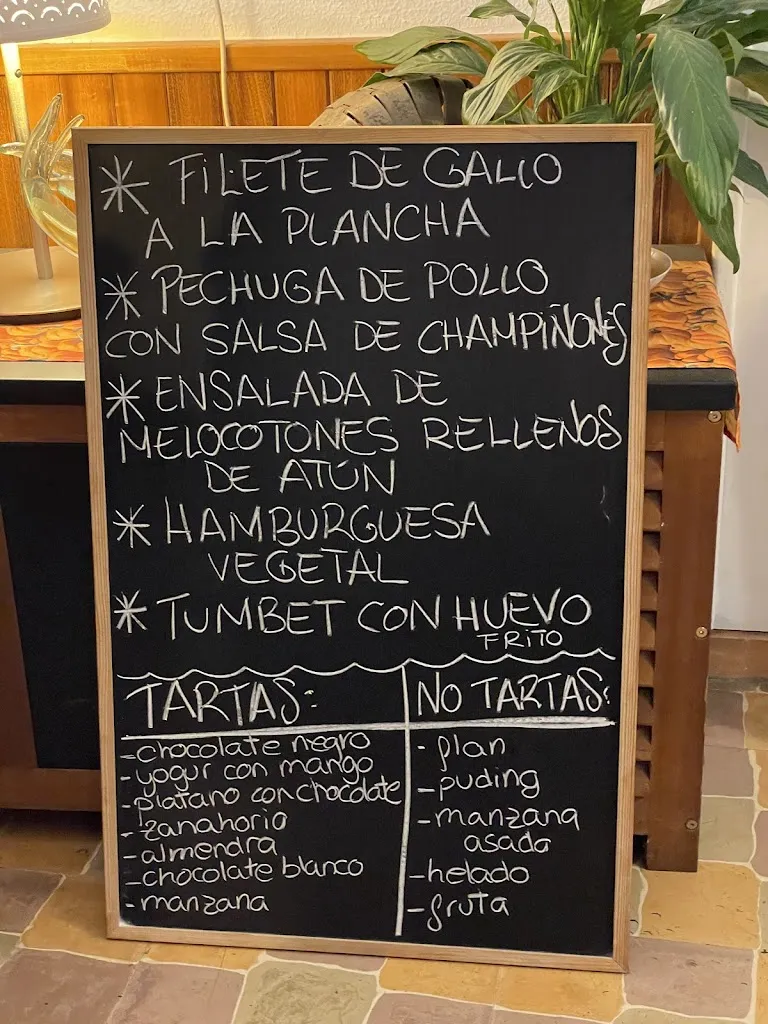 * FILETE DE GALLO
A LA PLANCHA
* PECHUGA DE POLLO
CON SALSA DE CHAMPIÑONES
* ENSALADA DE
MELOCOTONES RELLENOS
DE ATÚN
* HAMBURGUESA
VEGETAL
* TUMBET CON HUEVO
FRITO
TARTAS:
- chocolate negro
- yogur con mango
- platano con chocolate
- zanahoria
- almendra
- chocolate blanco
- manzana
NO TARTAS:
- plan
- puding
- manzana
asada
- helado
- fruta